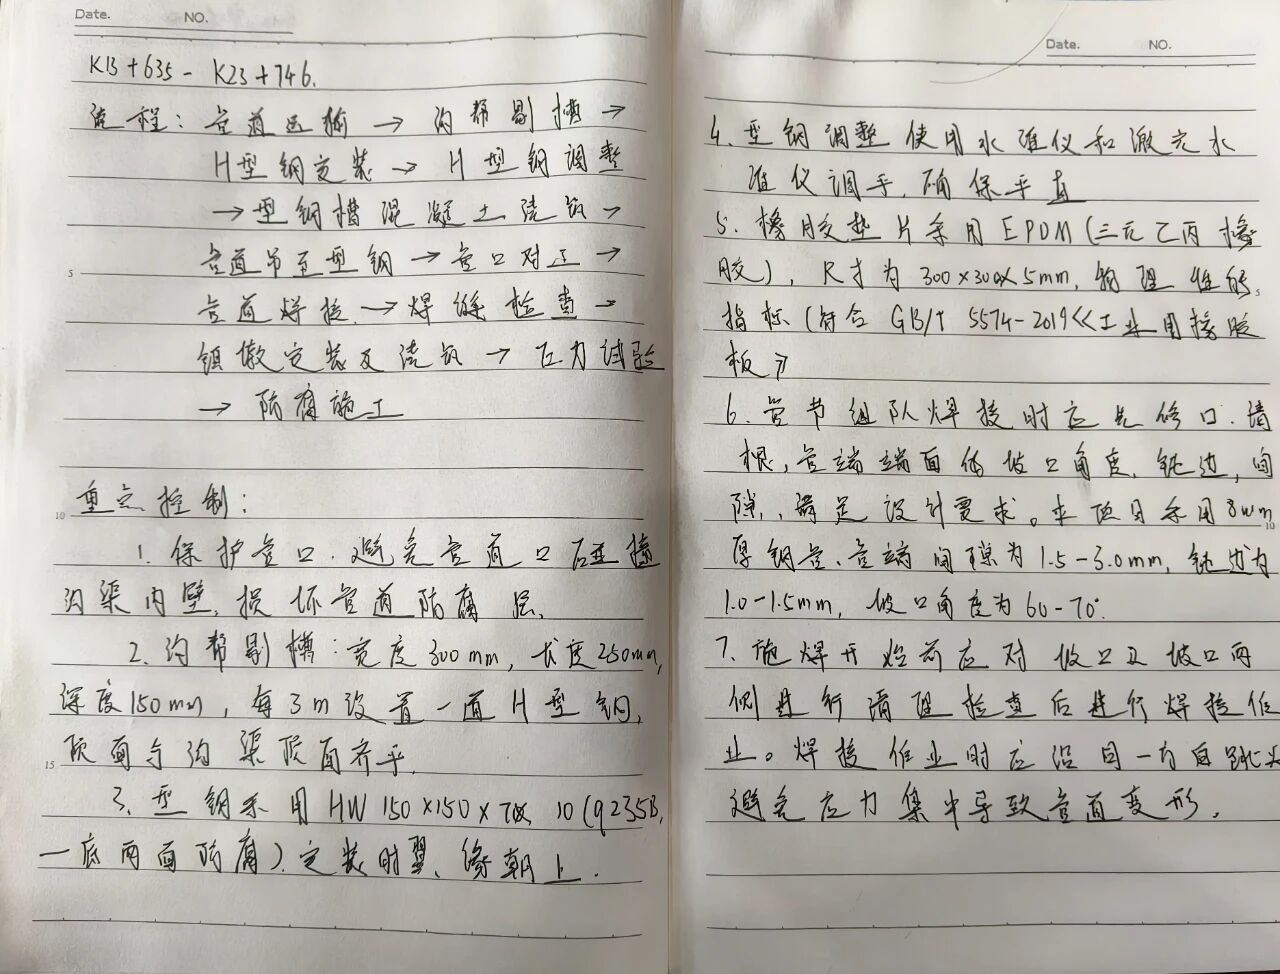 Date. NO.
K13+635-K23+746.
流程:管道运输→沟帮剔槽→
H型钢安装→H型钢调整
→型钢槽混凝土浇筑→
管道吊至型钢→管口对正→
5
管道焊接→焊缝检查→
镇墩安装及浇筑→压力试验
→防腐施工
重点控制:
10
1.保护管口.避免管道口碰撞
沟渠内壁,损坏管道防腐层.
2.沟帮剔槽:宽度300mm,长度250mm,
深度150mm,每3m设置一道H型钢,
顶面与沟渠顶面齐平.
15
3.型钢采用HW150×150×7×10(Q235B,
一底两面防腐).安装时翼缘朝上.
Date. NO.
4.型钢调整使用水准仪和激光水
准仪调平.确保平直
5.橡胶垫片采用EPDM(三元乙丙橡
胶),尺寸为300×300×5mm,物理性能
5
指标(符合GB/T 5574-2019《工业用橡胶
板》
6.管节组队焊接时应先修口.清
根,管端端面的坡口角度.钝边,间
隙,满足设计要求。本项目采用8mm
10
厚钢管.管端间隙为1.5-3.0mm,钝边为
1.0-1.5mm,坡口角度为60-70°.
7.施焊开始前应对坡口及坡口两
侧进行清理检查后进行焊接作
业。焊接作业时应沿同一方向
避免应力集中导致管道变形.